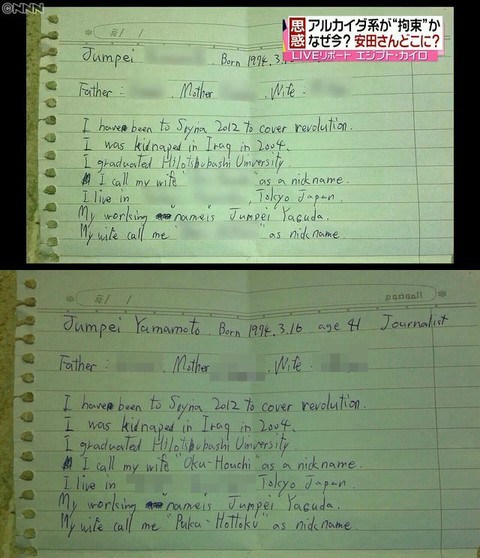 ©NNN
思惑
アルカイダ系が"拘束"か
なぜ今？安田さんどこに？
LIVEリポート エジプト・カイロ
Jumpei Born 1974.3.1
Father: Mother Wife:
I have been to Syria 2012 to cover revolution.
I was kidnaped in Iraq in 2004.
I graduated Hilotsubashi University
I call my wife " " as a nickname.
I live in Tokyo Japan.
My working name is Jumpei Yasuda.
My wife call me " " as nickname.
Jumpei Yamamoto. Born 1974.3.16 age 41 Journalist
Father: Mother Wife:
I have been to Syria 2012 to cover revolution.
I was kidnaped in Iraq in 2004.
I graduated Hilotsubashi University
I call my wife "Oku-Houchi" as a nickname.
I live in Tokyo Japan.
My working name is Jumpei Yasuda.
My wife call me "Puku-Hottoku" as nickname.